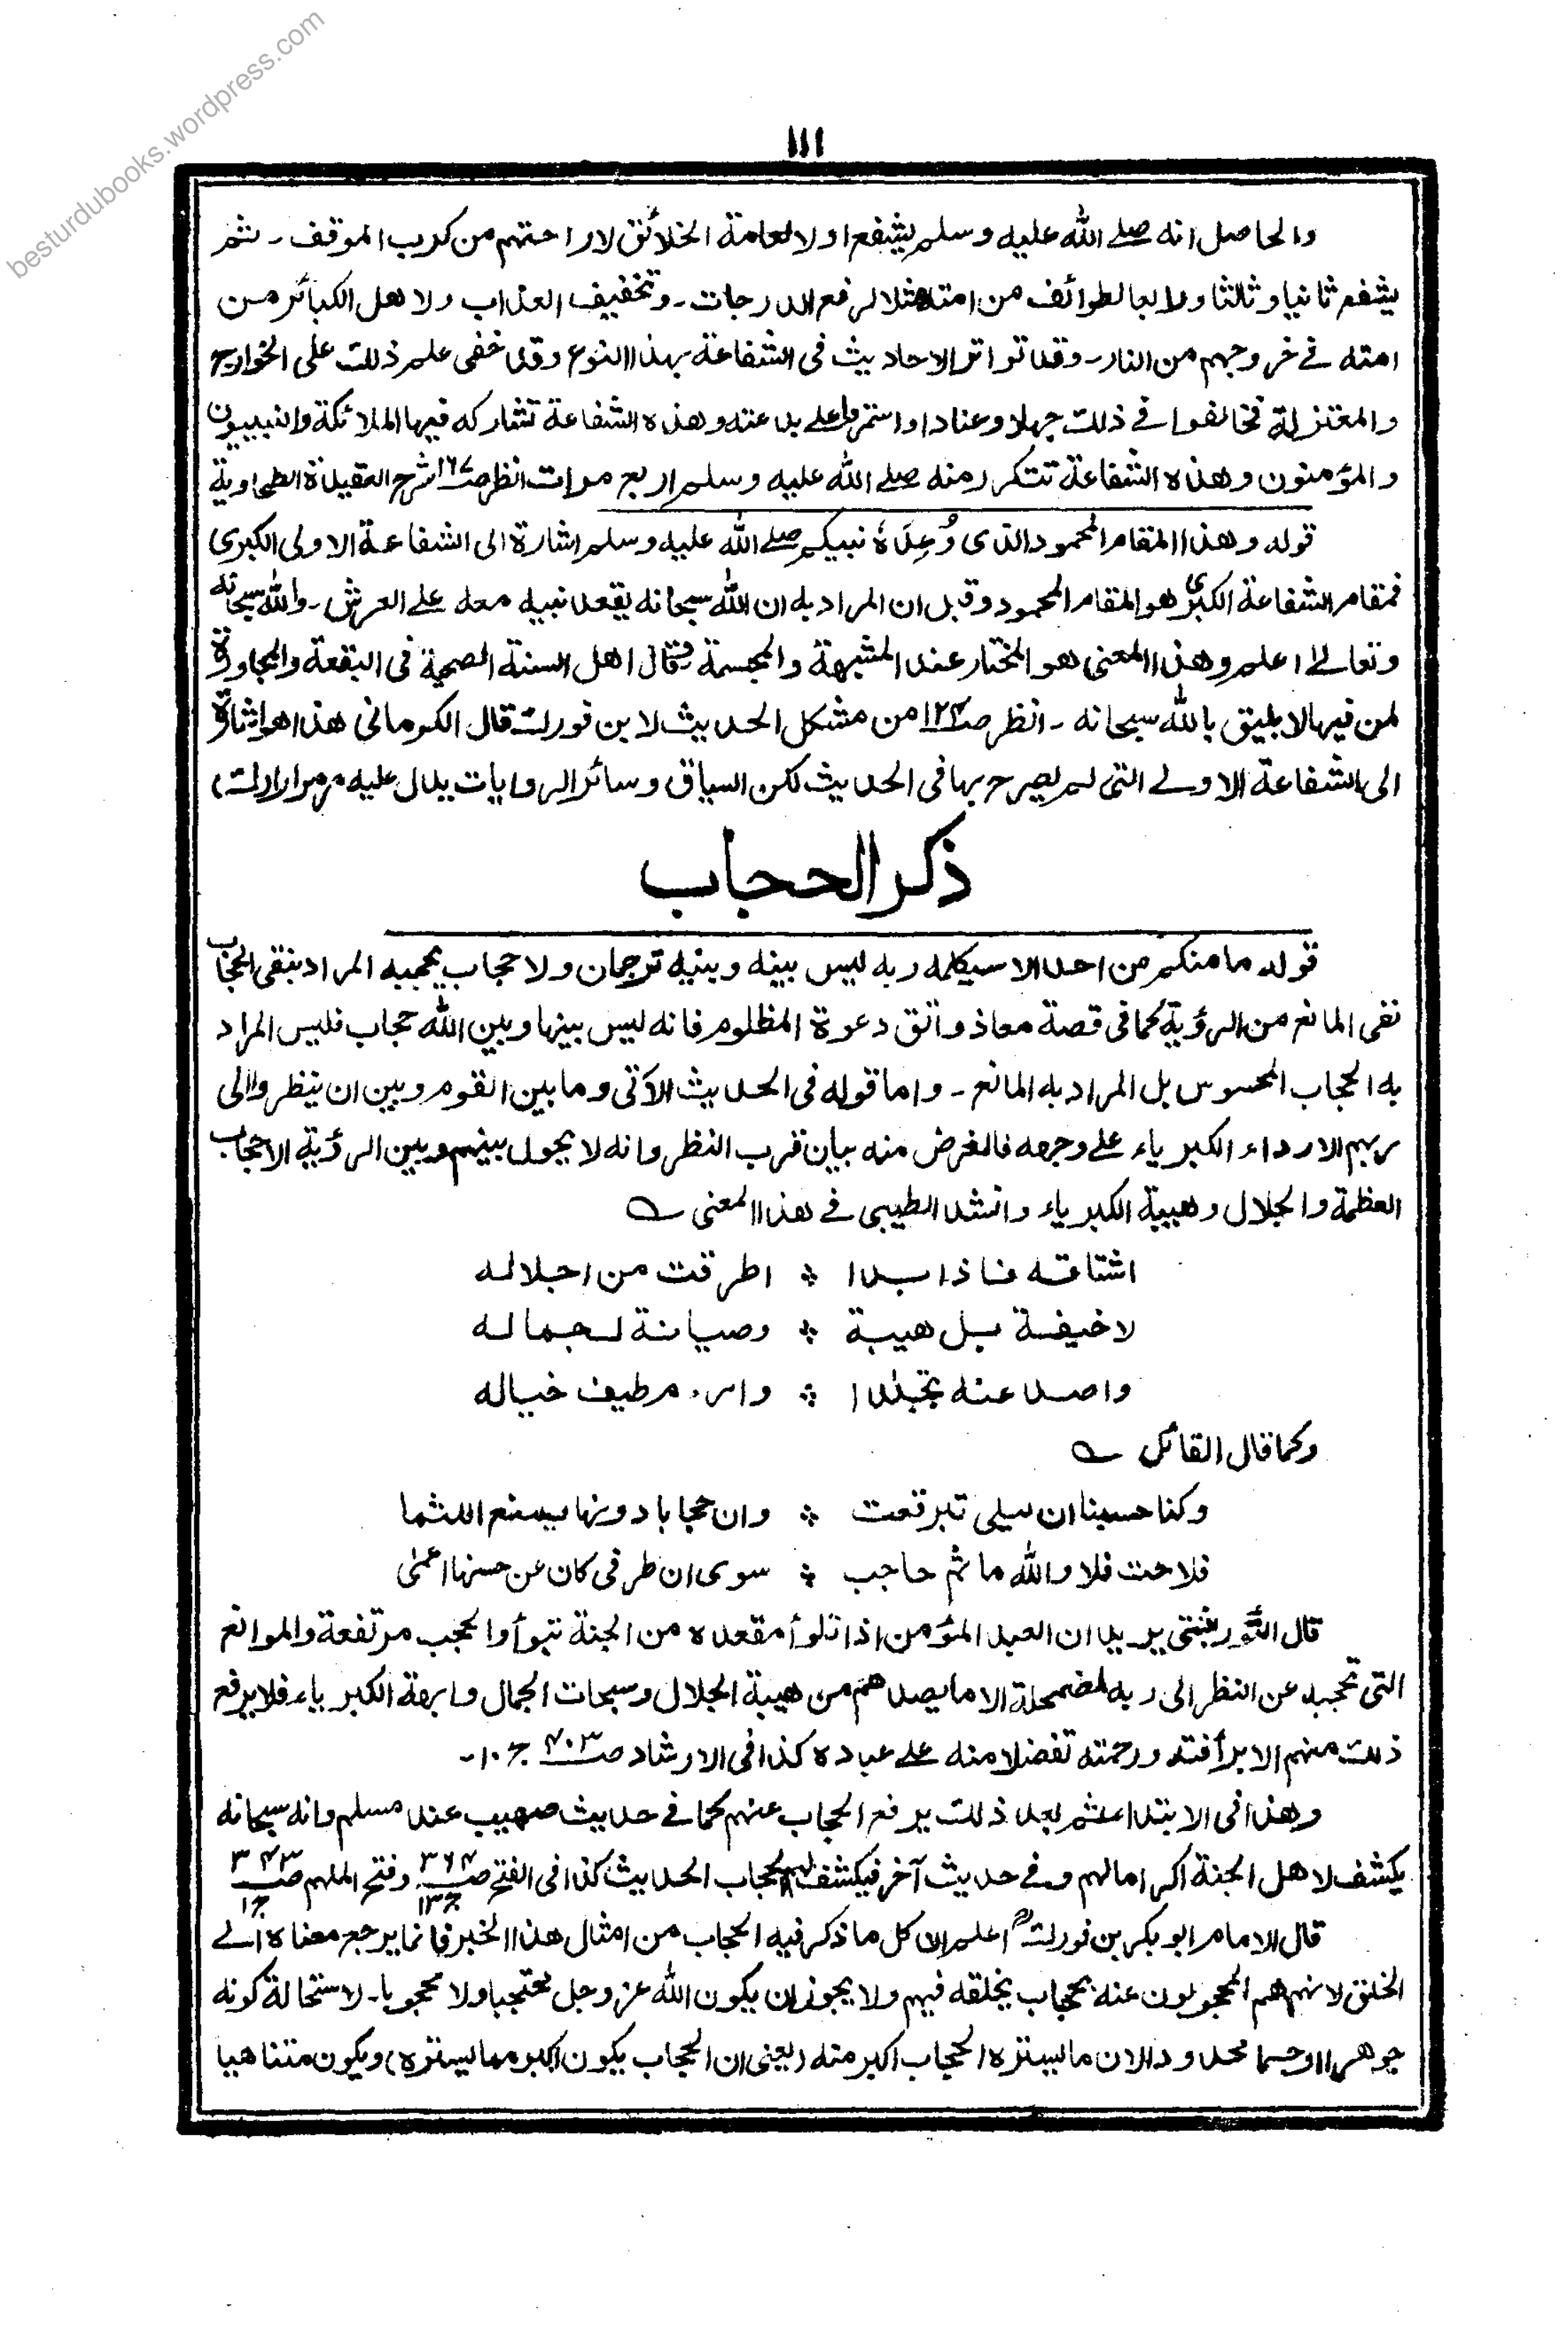 besturdubooks.wordpress.com
١١١
والحاصل انه صلے الله عليه وسلم يشفع اولا لعامة الخلائق لاراحتهم من كرب الموقف۔ ثم
يشفع ثانيا وثالثا ورابعا لطوائف من امته مثلا لرفع الدرجات۔ وتخفيف العذاب ولاهل الكبائر من
امته فے خروجهم من النار۔ وقد تواتر الاحاديث فى الشفاعة بهذا النوع وقد خفى علم ذلك على الخوارج
والمعتزلة فخالفوا فے ذلك جهلا وعنادا واستمروا علے بدعته وهذه الشفاعة تشاركه فيها الملائكة والنبييون
والمؤمنون وهذه الشفاعة تتكرر منه صلے الله عليه وسلم اربع مرات انظر صـ١٦٧ شرح العقيدة الطحاوية
قوله وهذا المقام المحمود الذى وُعِدَهٗ نبيكم صلے الله عليه وسلم اشارة الى الشفاعة الاولى الكبرى
فمقام الشفاعة الكبرى هو المقام المحمود وقبل ان المراد به ان الله سبحانه يقعد نبيه معه علے العرش۔ والله سبحانه
وتعالےٰ اعلم وهذا المعنى هو المختار عند المشبهة والمجسمة وقال اهل السنة الصحية فى البقعة والمجاورة
لمن فيها لا يليق بالله سبحانه۔ انظر صـ١٢٣ من مشكل الحديث لابن فورك قال الكرمانى هذا هو اشارة
الى الشفاعة الاولے التى لم يصرح بها فى الحديث لكن السياق وسائر الروايات يدل عليه
ذكر الحجاب
قوله ما منكم من احد الا سيكلمه ربه ليس بينه وبينه ترجمان ولا حجاب يحجبه المراد بنفى الحجاب
نفى المانع من الرؤية كما فى قصة معاذ واتق دعوة المظلوم فانه ليس بينها وبين الله حجاب فليس المراد
به الحجاب المحسوس بل المراد به المانع۔ واما قوله فى الحديث الآتى وما بين القوم وبين ان ينظروا الى
ربهم الا رداء الكبرياء علے وجهه فالغرض منه بيان قرب النظر وانه لا يحول بينهم وبين الرؤية الا حجاب
العظمة والجلال وهيبة الكبرياء وانشد الطيبى فے هذا المعنى ؎
اشتاقه فاذا بدا ؞ اطرقت من اجلاله
لا خيفة بل هيبة ؞ وصيانة لجماله
واصد عنه تجلدا ؞ وا طيف خياله
وكما قال القائل ؎
وكنا حسبنا ان ليلى تبرقعت ؞ وان حجابا دونها يمنع اللثما
فلاحت فلا والله ما ثم حاجب ؞ سوى ان طرفى كان عن حسنها اعمىٰ
قال التُّورِبِشتى يريد ان العبد المؤمن اذا تبوأ مقعده من الجنة تبوأ والحجب مرتفعة والموانع
التى تحجبه عن النظر الى ربه مضمحلة الا ما يصدهم من هيبة الجلال وسبحات الجمال وابهة الكبرياء فلا يرفع
ذلك منهم الا برأفته ورحمته تفضلا منه علے عباده كذا فى الارشاد صـ٤٠٣ ج١٠۔
وهذا فى الابتداء ثم بعد ذلك يرفع الحجاب عنهم كما فے حديث صهيب عند مسلم وانه سبحانه
يكشف لاهل الجنة اكراما لهم وفے حديث آخر فيكشف لهم الحجاب الحديث كذا فى الفتح صـ٣٦٤ ج١٣ وفتح الملهم صـ٣٤٣ ج١
قال الامام ابوبكر بن فورك اعلم ان كل ما ذكر فيه الحجاب من امثال هذا الخبر فانما يرجع معناه الے
الخلق لانهم هم المحجوبون عنه بحجاب يخلقه فيهم ولا يجوز ان يكون الله عز وجل محتجبا ولا محجوبا۔ لاستحالة كونه
جوهرا او جسما محدودا لان ما يستره الحجاب اكبر منه (يعنى ان الحجاب يكون اكبر مما يستره) ويكون متناهيا